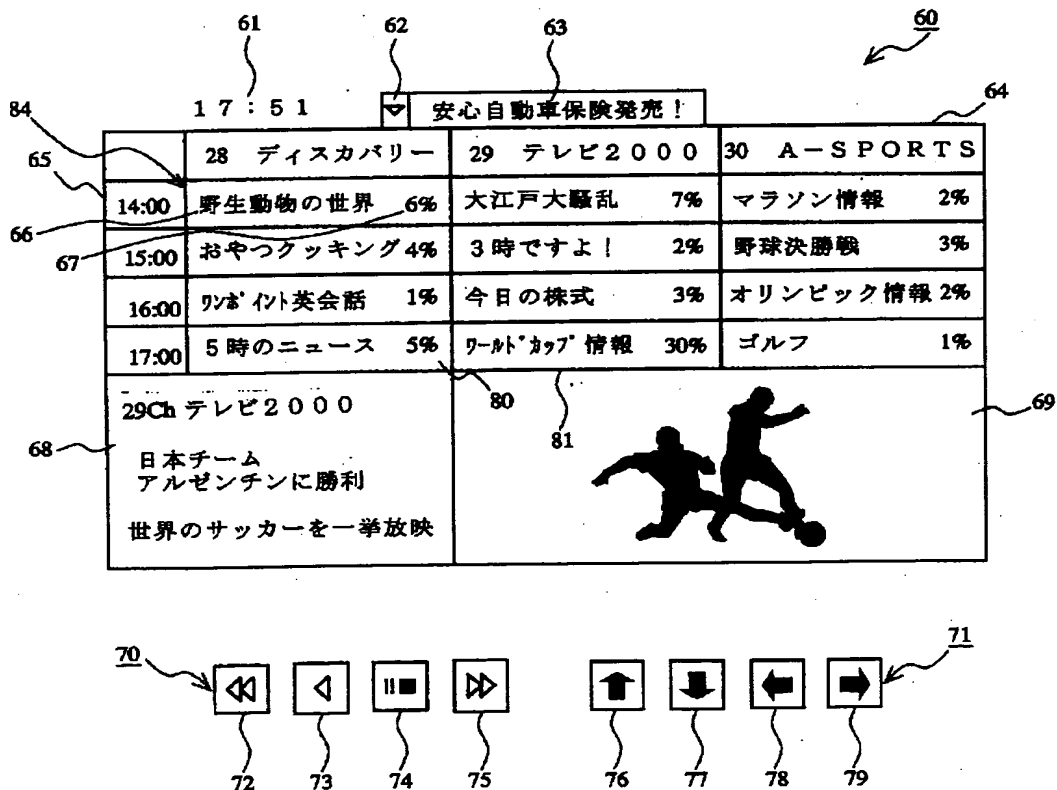 61 62 63 60
17:51 安心自動車保険発売！ 64
84
65 28 ディスカバリー 29 テレビ２０００ 30 Ａ－ＳＰＯＲＴＳ
14:00 野生動物の世界 6% 大江戸大騒乱 7% マラソン情報 2%
66
67 15:00 おやつクッキング 4% ３時ですよ！ 2% 野球決勝戦 3%
16:00 ﾜﾝﾎﾟｲﾝﾄ英会話 1% 今日の株式 3% オリンピック情報 2%
17:00 ５時のニュース 5% ﾜｰﾙﾄﾞｶｯﾌﾟ情報 30% ゴルフ 1%
29Ch テレビ２０００ 80 81 69
68
日本チーム
アルゼンチンに勝利
世界のサッカーを一挙放映
70 71
72 73 74 75 76 77 78 79